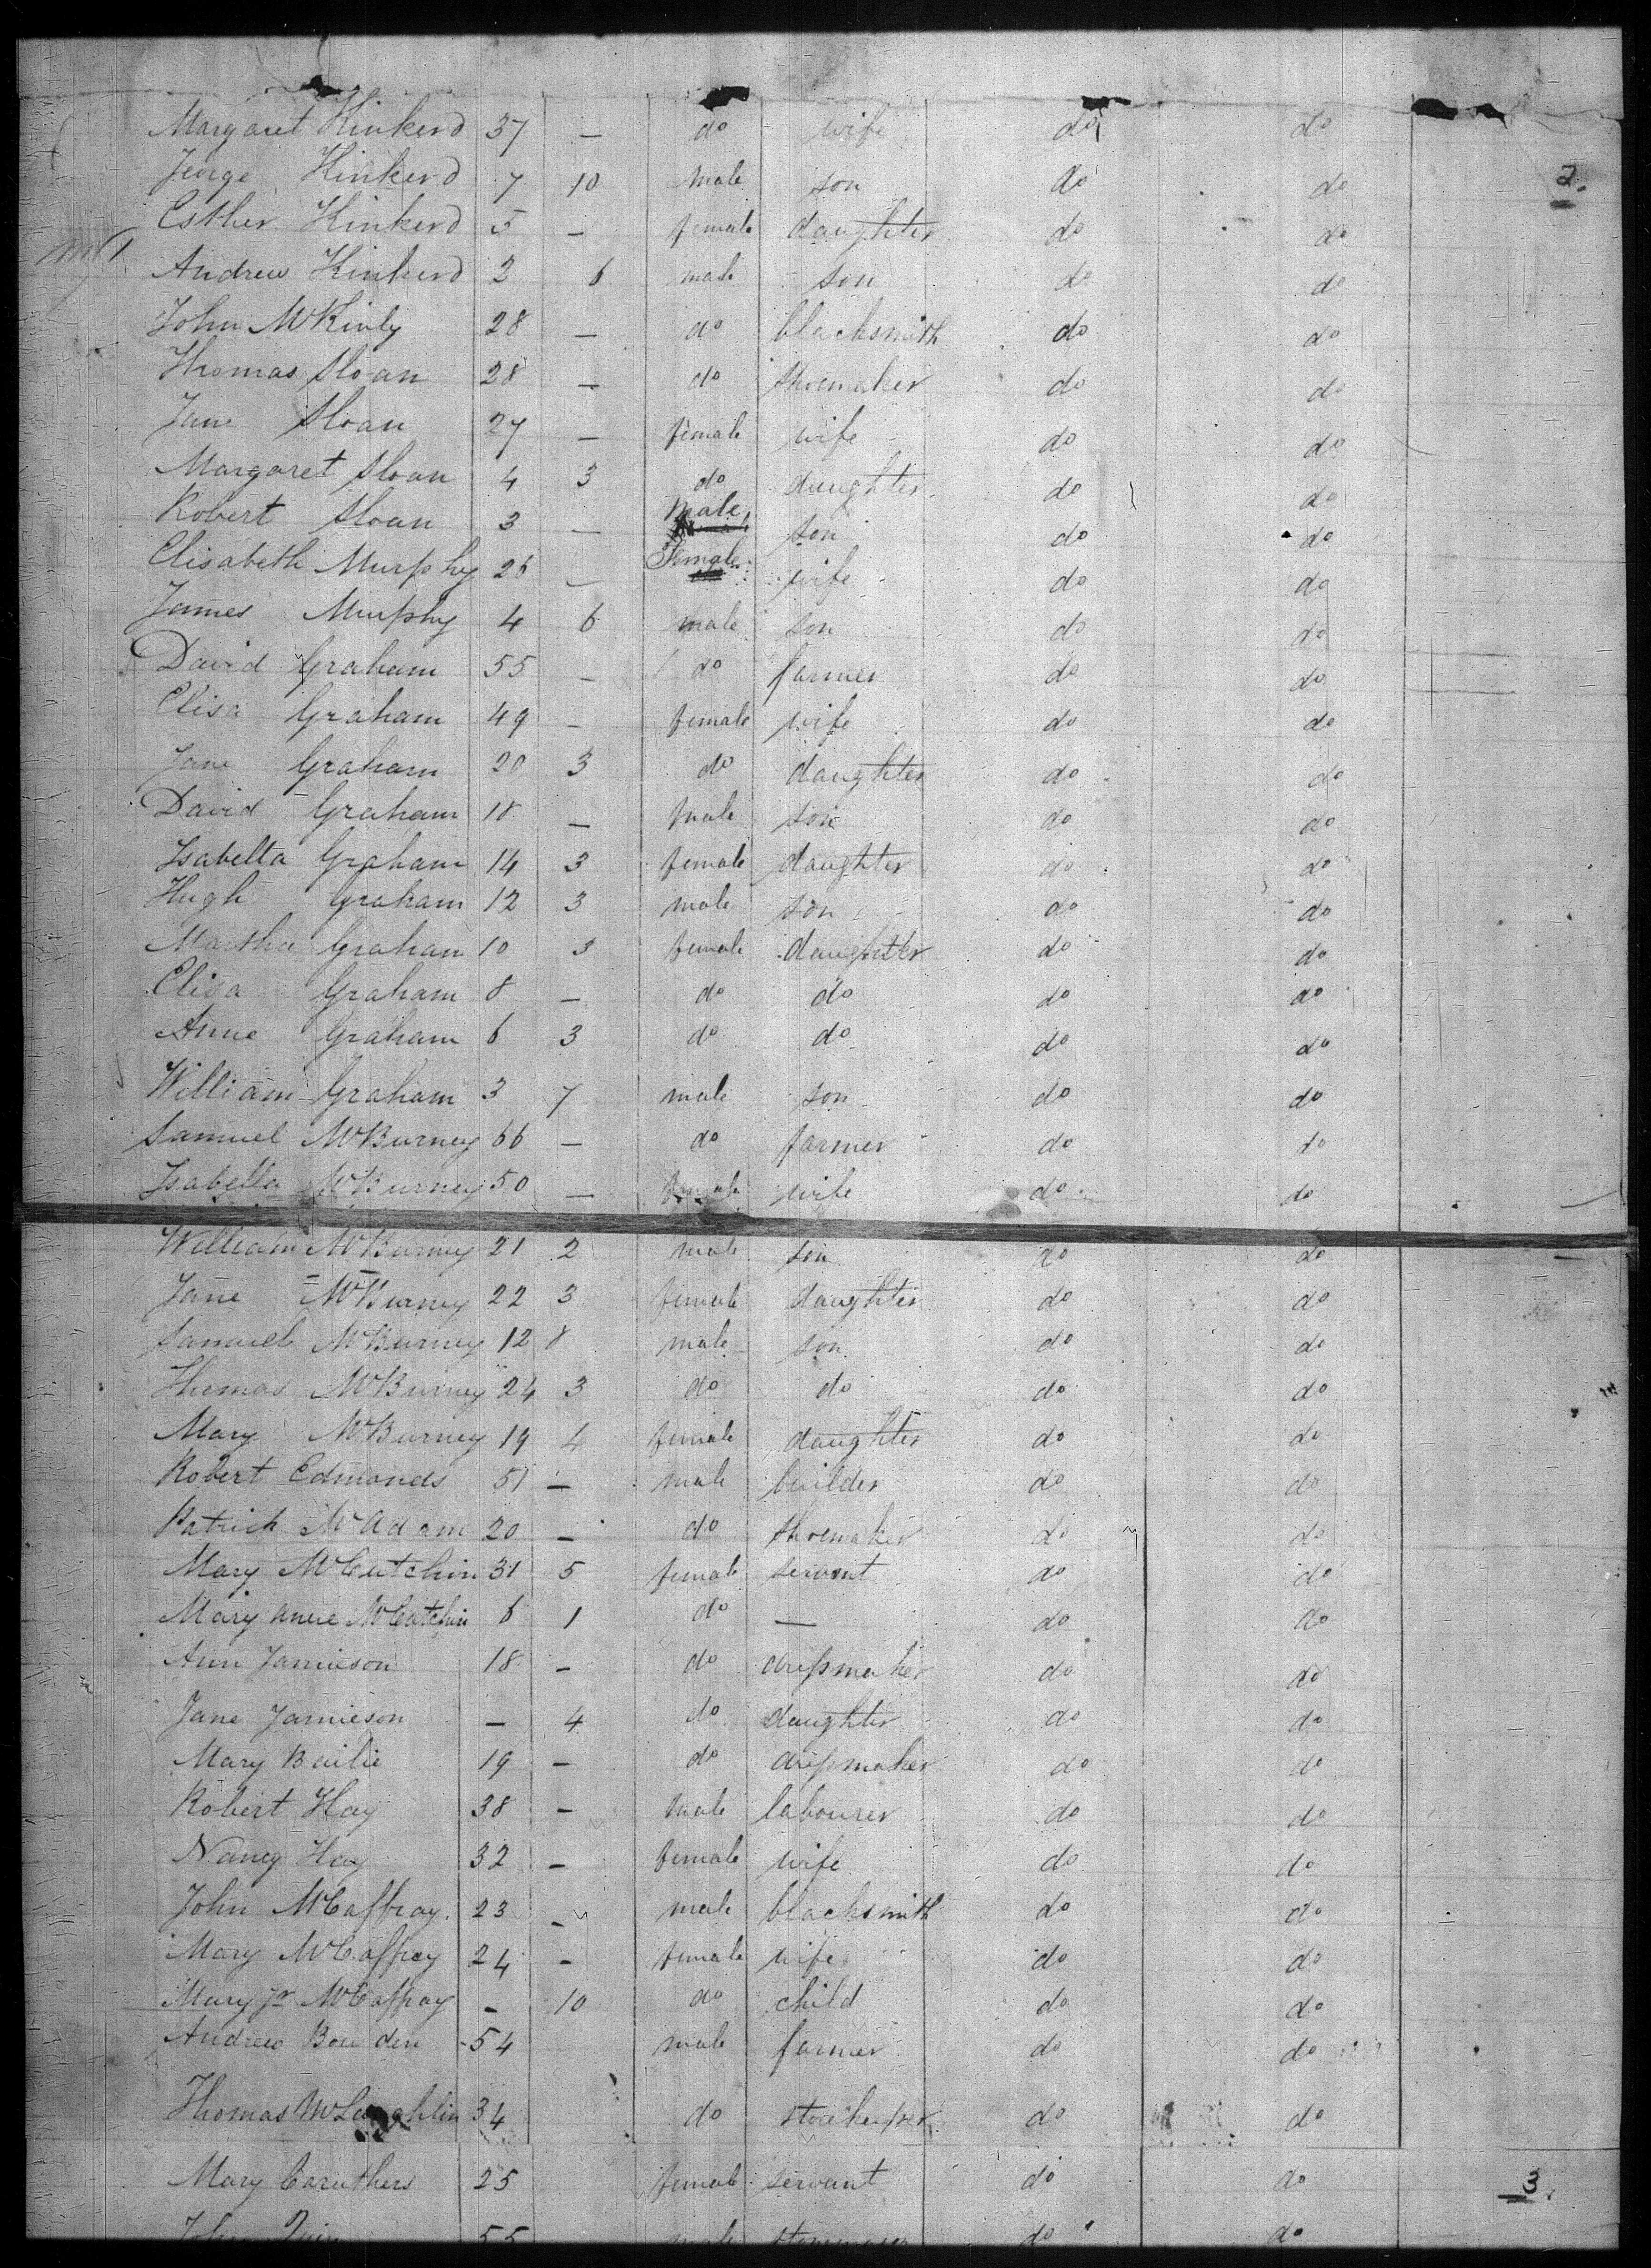 Margaret Kinkerd 37 — do wife do do
Jeorge Kinkerd 7 10 male son do do 2.
Esther Kinkerd 5 — female daughter do do
Andrew Kinkerd 2 6 male son do do
John McKinly 28 — do blacksmith do do
Thomas Sloan 28 — do shoemaker do do
Jane Sloan 27 — female wife do do
Margaret Sloan 4 3 do daughter do do
Robert Sloan 3 — male son do do
Elisabeth Murphy 26 — Female wife do do
James Murphy 4 6 male son do do
David Graham 55 — do farmer do do
Elisa Graham 49 — female wife do do
Jane Graham 20 3 do daughter do do
David Graham 18 — male son do do
Isabella Graham 14 3 female daughter do do
Hugh Graham 12 3 male son do do
Martha Graham 10 3 female daughter do do
Elisa Graham 8 — do do do do
Anne Graham 6 3 do do do do
William Graham 3 7 male son do do
Samuel McBurney 66 — do farmer do do
Isabella McBurney 50 — female wife do do
William McBurney 21 2 male son do do
Jane McBurney 22 3 female daughter do do
Samuel McBurney 12 8 male son do do
Thomas McBurney 24 3 do do do do
Mary McBurney 19 4 female daughter do do
Robert Edmonds 51 — male builder do do
Patrick McAdam 20 — do shoemaker do do
Mary McCutchin 31 5 female servant do do
Mary Anne McCutchin 6 1 do — do do
Ann Jamieson 18 — do dressmaker do do
Jane Jamieson — 4 do daughter do do
Mary Bailie 19 — do dressmaker do do
Robert Hay 38 — male labourer do do
Nancy Hay 32 — female wife do do
John McCaffray 23 — male blacksmith do do
Mary McCaffray 24 — female wife do do
Mary Jr McCaffray — 10 do child do do
Andrew Bowden 54 male farmer do do
Thomas McLaughlin 34 do storekeeper do do
Mary Caruthers 25 female servant do do 3.
John 55 male do do